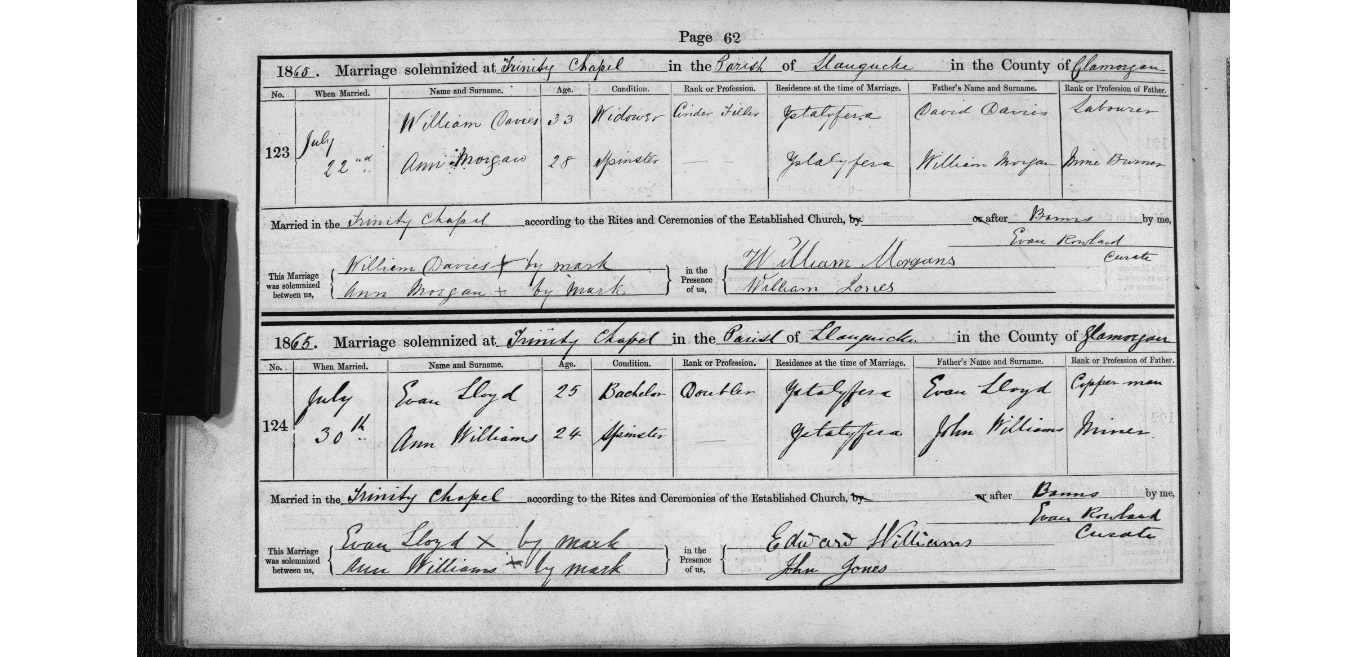 Page 62
1865. Marriage solemnized at Trinity Chapel in the Parish of Llanguicke in the County of Glamorgan
No. When Married. Name and Surname. Age. Condition. Rank or Profession. Residence at the time of Marriage. Father's Name and Surname. Rank or Profession of Father.
123 July 22nd William Davies 33 Widower Cinder Filler Ystalyfera David Davies Labourer
Ann Morgan 28 Spinster — Ystalyfera William Morgan Mine Burner
Married in the Trinity Chapel according to the Rites and Ceremonies of the Established Church, by or after Banns by me,
Evan Rowland
Curate
This Marriage was solemnized between us, William Davies X by mark in the Presence of us, William Morgans
Ann Morgan X by mark William Jones
1865. Marriage solemnized at Trinity Chapel in the Parish of Llanguicke in the County of Glamorgan
No. When Married. Name and Surname. Age. Condition. Rank or Profession. Residence at the time of Marriage. Father's Name and Surname. Rank or Profession of Father.
124 July 30th Evan Lloyd 25 Bachelor Doubler Ystalyfera Evan Lloyd Copper man
Ann Williams 24 Spinster — Ystalyfera John Williams Miner
Married in the Trinity Chapel according to the Rites and Ceremonies of the Established Church, by or after Banns by me,
Evan Rowland
Curate
This Marriage was solemnized between us, Evan Lloyd X by mark in the Presence of us, Edward Williams
Ann Williams X by mark John Jones